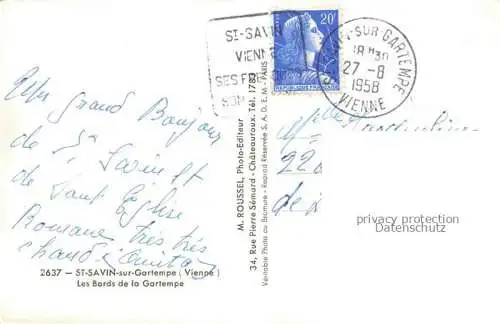 Un grand Bonjour
de St Savin et
de Saint Église
Romane très très
chaud
2637 — ST-SAVIN-sur-Gartempe (Vienne)
Les Bords de la Gartempe
M. ROUSSEL, Photo-Editeur
34, Rue Pierre Sémard - Châteauroux. Tél. 1780
Véritable Photo au Bromure - Reprod. Réservée S. A. D. E. M. - PARIS
ST-SAVIN
VIENNE
SES
SON
20F
REPUBLIQUE FRANÇAISE
ST-SAVIN-SUR-GARTEMPE
18 H 30
27 - 8
1958
VIENNE
Mlle
22
de
privacy protection
Datenschutz